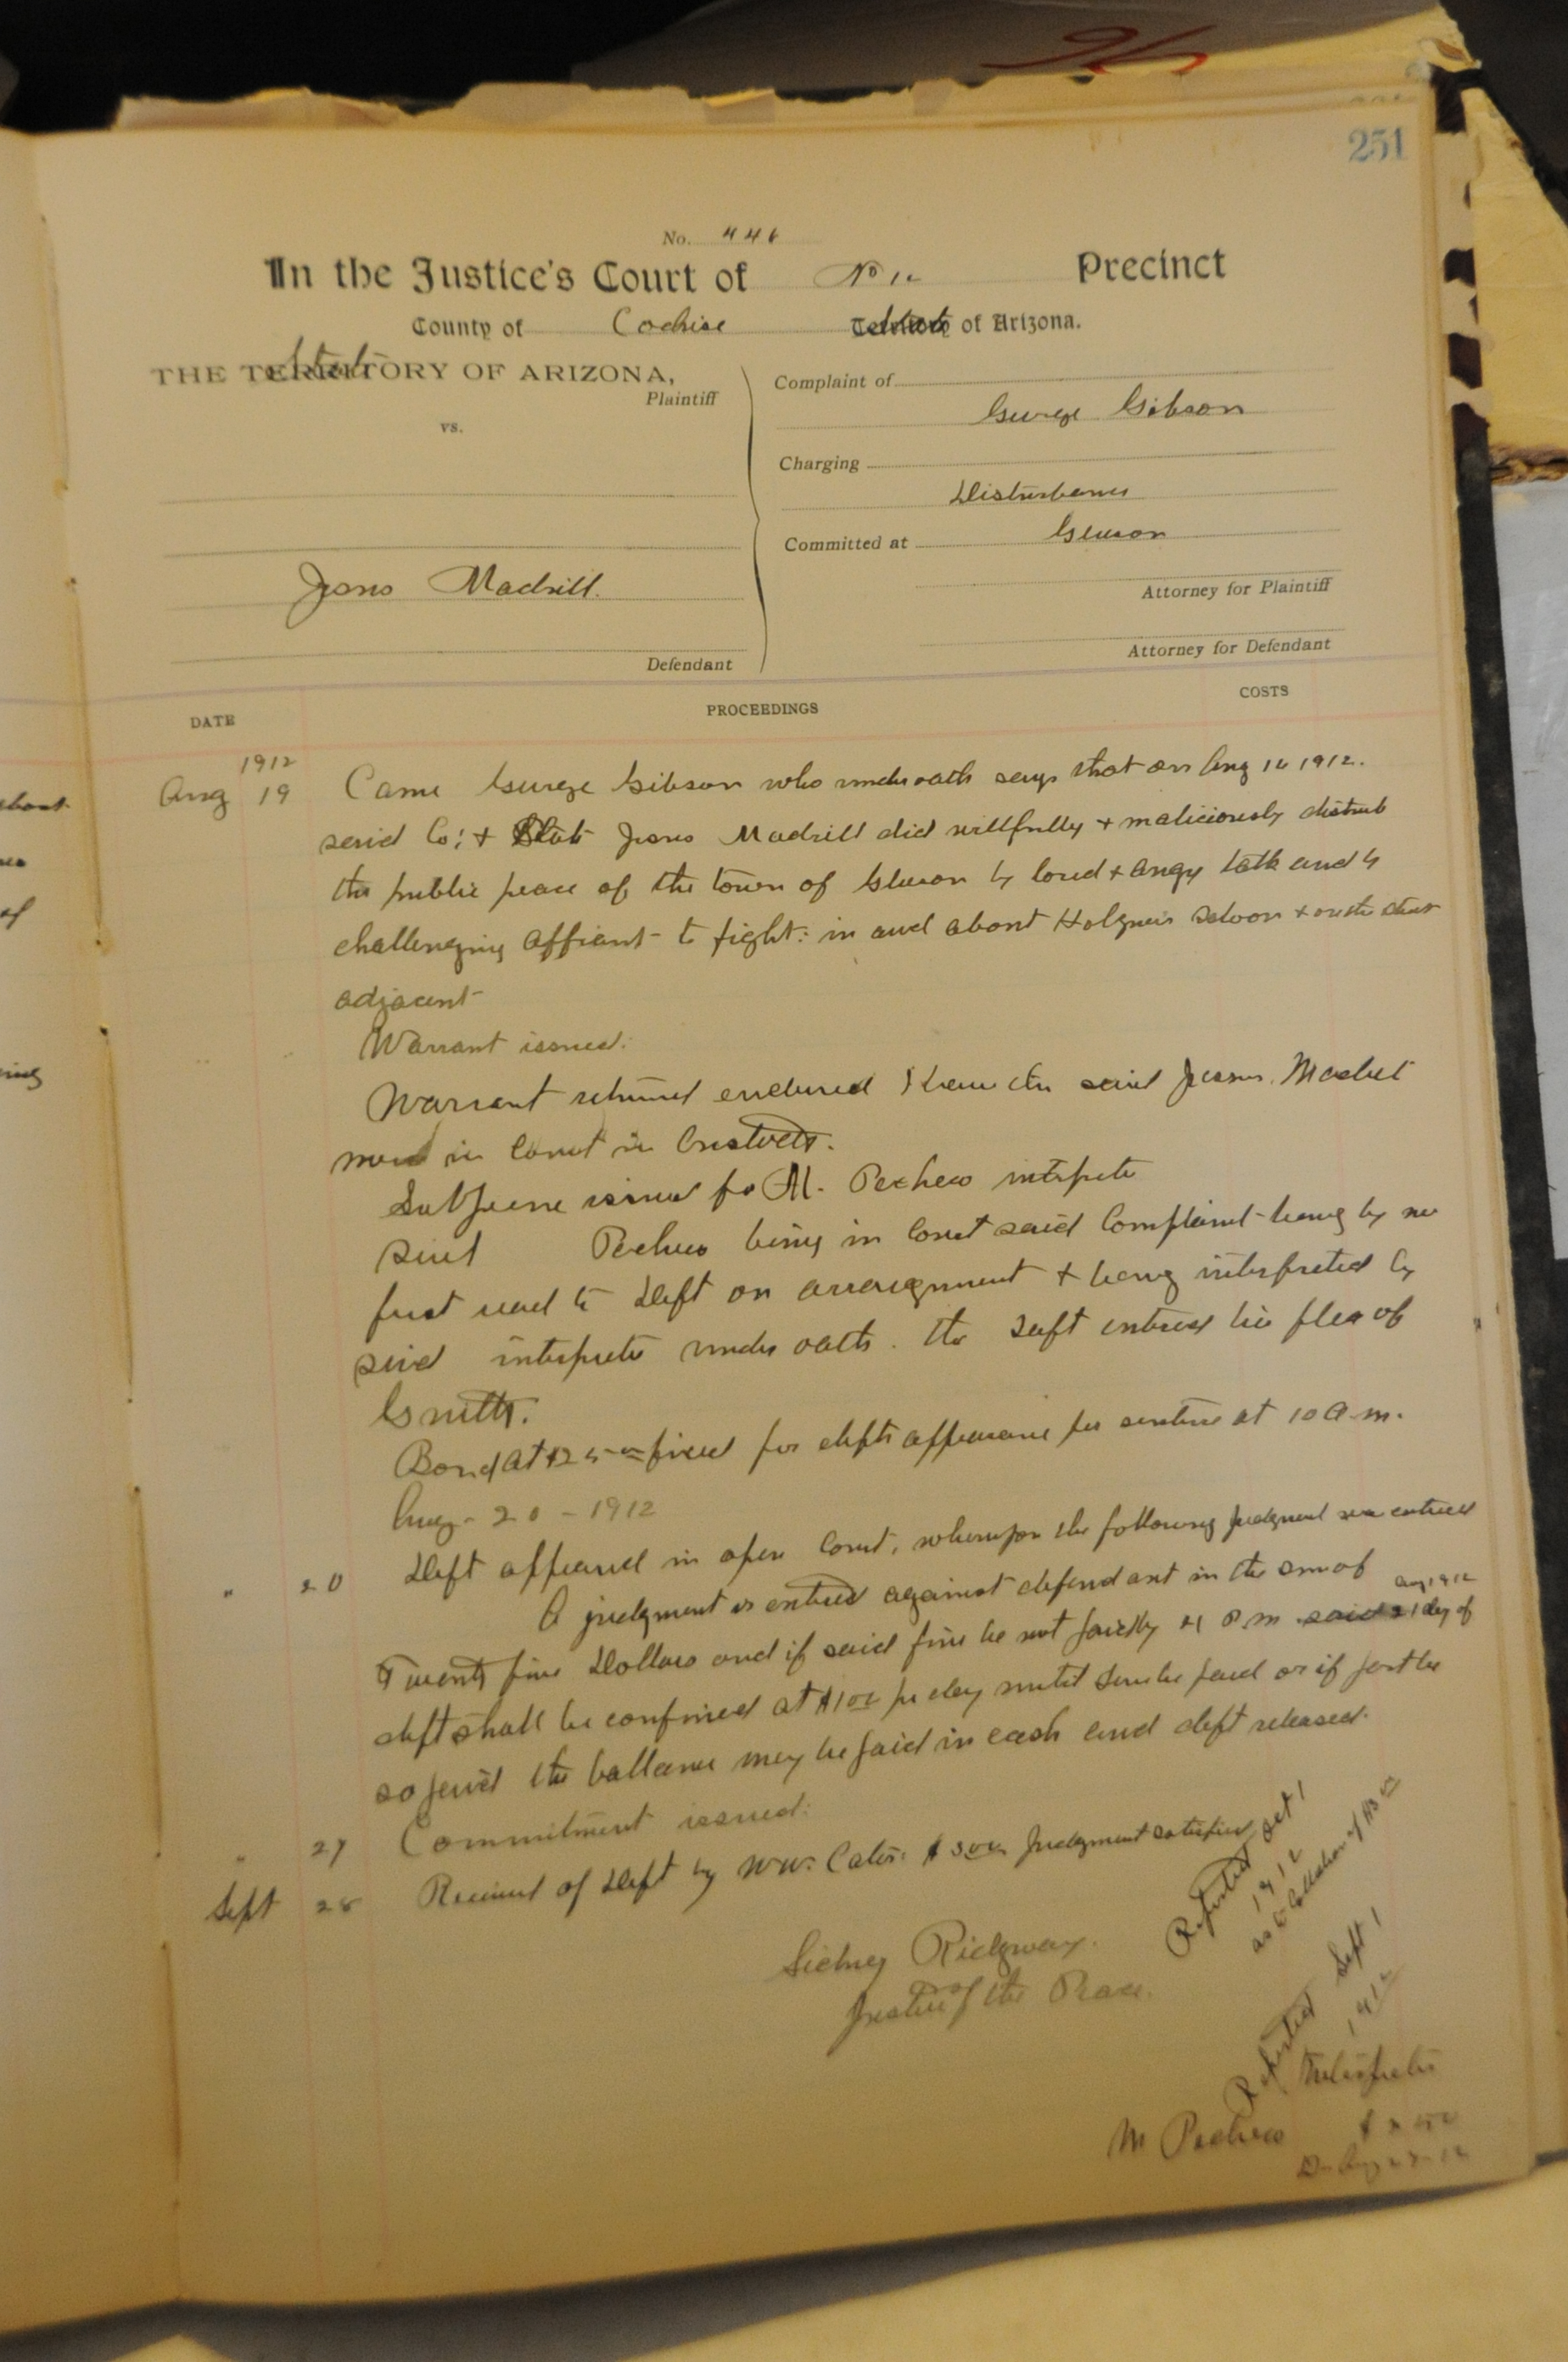 251
No. 446
In the Justice's Court of No 12 Precinct
County of Cochise State of Arizona.
THE State OF ARIZONA,
Plaintiff
vs.
Jesus Madrill.
Defendant
Complaint of
George Gibson
Charging
Disturbance
Committed at Gleeson
Attorney for Plaintiff
Attorney for Defendant
DATE PROCEEDINGS COSTS
1912
Aug 19 Came George Gibson who under oath says that on Aug 1912.
said Co; + State Jesus Madrill did willfully + maliciously distrub
the public peace of the town of Gleeson by loud + angy talk and by
challenging affiant to fight: in and about Holguin's Saloon +
adjacent
Warrant issued.
Warrant returned endorsed I have the said Jesus
now in Court in Custody.
Subpene issued for M. Pecheco
said Pecheco being in Court said Complaint being by me
first read to Deft on arraignment + being interpreted by
said interpreter under oath. the Deft entered his plea of
Guilty.
Bond at $25 00 fixed for defts appearance for sentence at 10 a.m.
Aug - 20 - 1912
" 20 Deft appeared in open Court, whereupon the following judgment was entered
A judgment is entered against defendant in the sum of
Aug 1912
Twenty five Dollars and if said fine be not paid by P.m. said 21 day of
deft shall be confined at $1 00 per day until same be paid or if part be
so served the ballance may be paid in cash and deft released.
" 27 Commitment issued.
Sept 28 Received of Deft by W.W. $ 5 00 Judgment satisfied
Sidney Ridgway.
Justice of the Peace.
Reported Oct 1
1912
as Collection of
Reported Sept 1
1912
Interpreter
M Pecheco